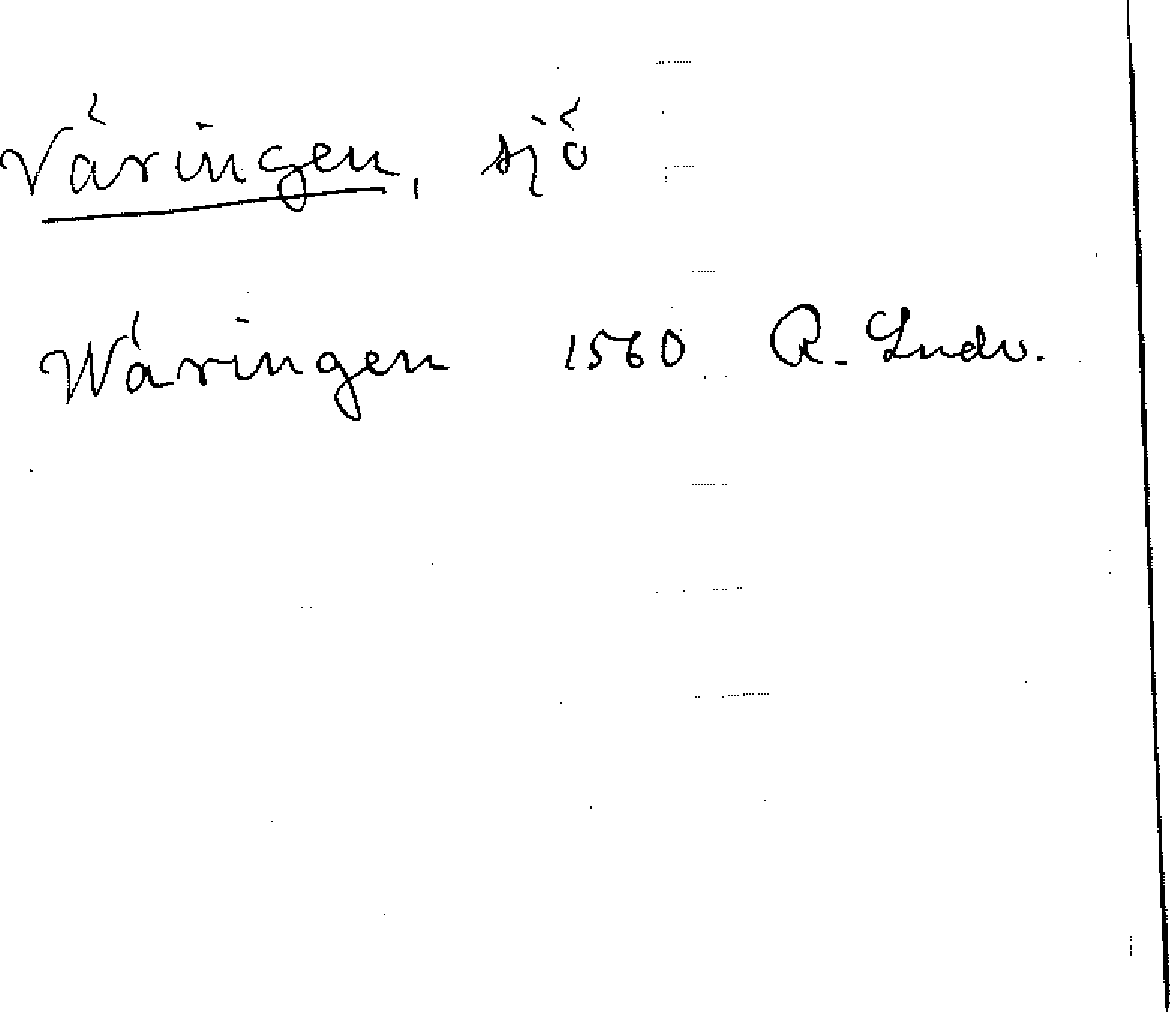 Väringen, sjö
Wäringen 1560 R. Ludv.